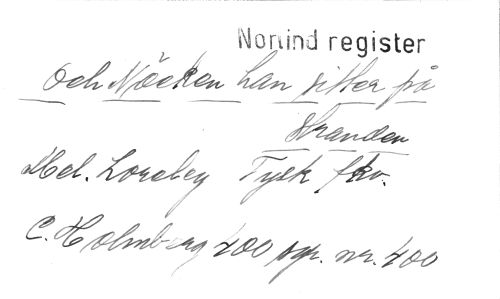 Norlind register
Och Näcken han sitter på
stranden
Mel. Loreley Tysk fkv.
C. Holmberg 400 sgr. nr. 400